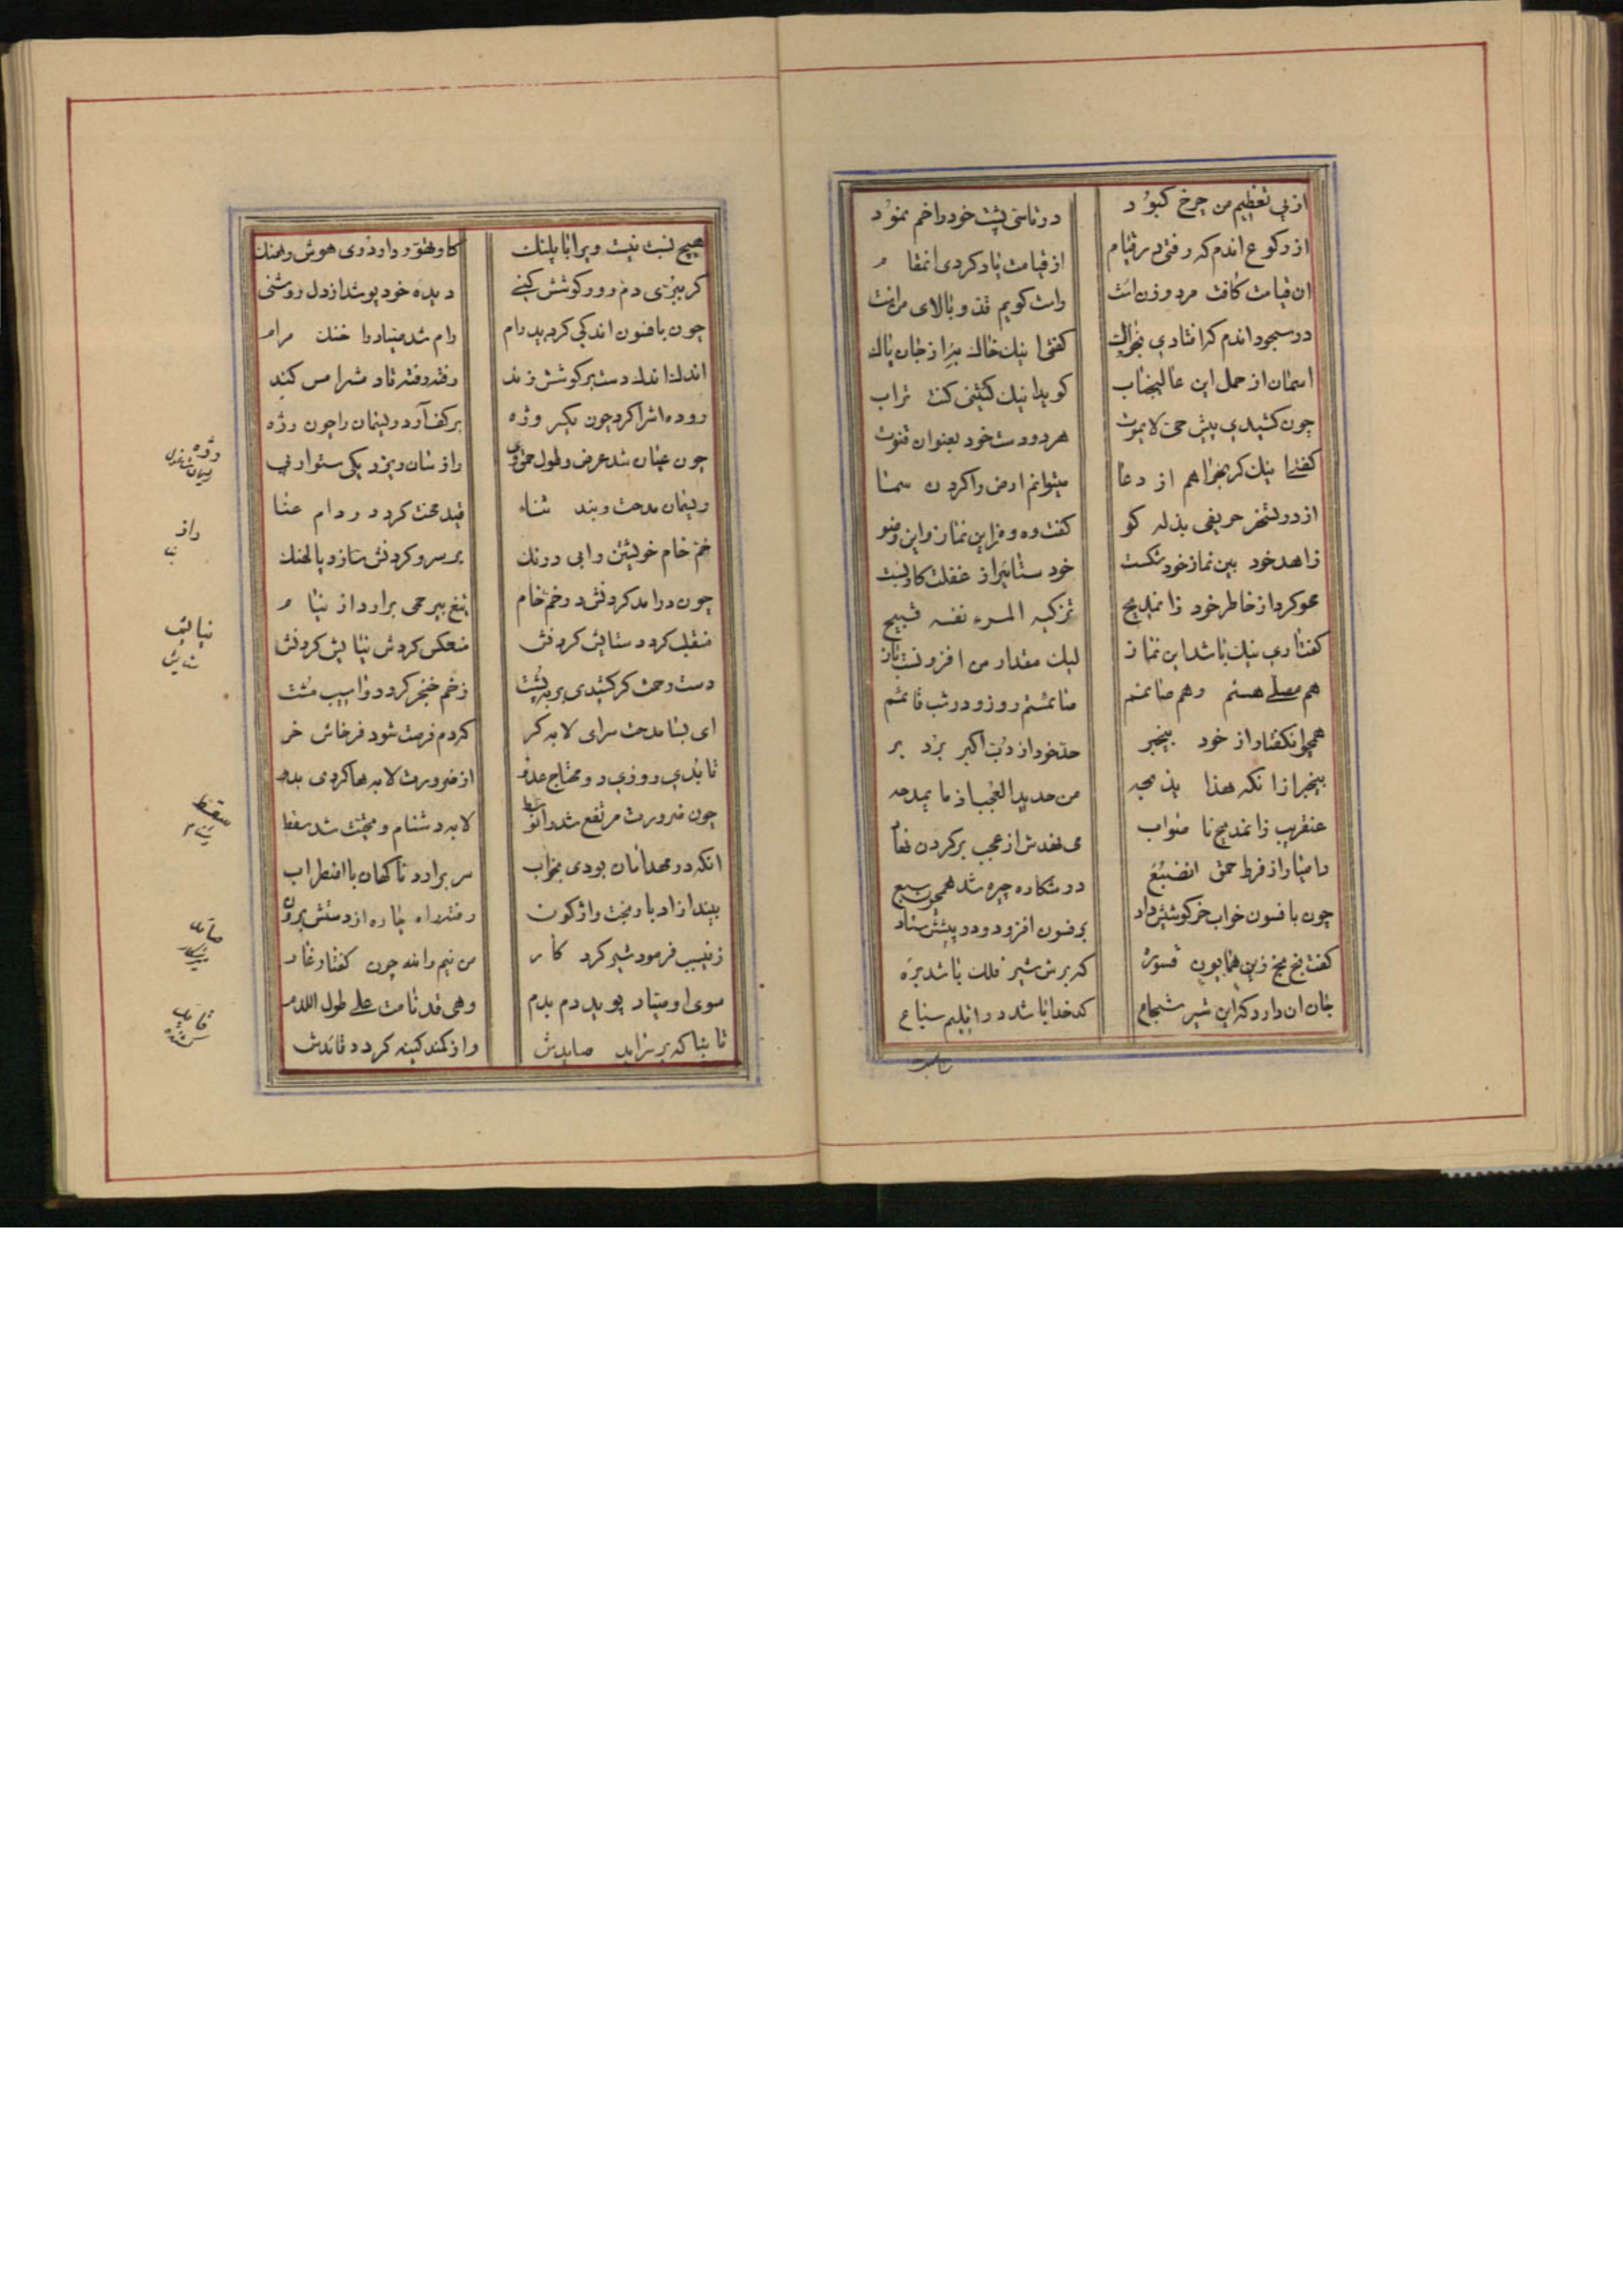 از پی تعظیم من چرخ کبود در تاسی پشت خود را خم نمود
از رکوع اندم که رفتی در قیام از قیامت یاد کردی انمقام
ان قیامت کافت مرد و زن است راست کویم قد و بالای منست
در سجود اندم که افتادی بخاک کفتی اینک خاک من از جان پاک
اسمان از حمل این عالیجناب کوید اینک کنتنی کنت تراب
چون کشیدی پیش حی لایموت هر دو دست خود بعنوان قنوت
کفتی اینک کر بخواهم از دعا میتوانم ارض را کردن سما
از در تسخر حریفی بذله کو کفت وه وه زاین نماز و این وضو
زاهد خود بین نماز خود شکست خود ستائی از غفلت
محو کرد از خاطر خود زانمدیح تزکیه المرء نفسه قبیح
کفت اری نیک باشد این نماز لیک مقدار من افزونست باز
هم مصلی هستم وهم صائمم صائمستم روز و در شب قائمم
همچو انکفتار از خود بیخبر خود از دب اکبر برد بر
بیخبر از انکه هذا یذبحه من حدید العجب اذ ما یمدحه
عنقریب زانمدیح نا صواب می نهندش از عجب بر کردن
دامیار از فرط حمق انضبع در شکاره چیره شد همچون سبع
چون بافسون خواب خرکوشیش داد بر فسون افزود و در پیشش ستاد
کفت بخ بخ زین همایون قسوره که برش شیر فلک باشد بره
جان ان دارد که این شیر شجاع کدخدا باشد در اقلیم سباع
هیچ نسبت نیست ویرا با پلنک کاو تهور دارد وی هوش و هنک
کر بیزی دم رود کوشش کنی دیده خود پوشد از دل روشنی
چون بافسون اندکی کردید رام رام شد صیاد را خنک مرام
اندک اندک دست بر کوشش زند رفته رفته تا دمش را مس کند
روده اش را کرد چون یکسر وژه بر کف آرد ریسمان را چون رژه
چون عیان شد عرض و طول حمق وی راز سان ریزد یکی ستوار پی
ریسمان مدحت و بند ثناء قید محنت کردد و دام عنا
خم خام خویشتن را بی درنک بر سر و کردنش سازد پالهنک
چون درامد کردنش در خم خام تیغ بیرحمی برارد از نیام
منقلب کردد ستایش کردنش منعکس کردش نیایش کردنش
دست رحمت کر کشیدی بر به پشت زخم خنجر کردد و اسیب مشت
ای بسا مدحت سرای لابه کر کردم فرصت شود فرخاش خر
تا بدی روزی دو محتاج عدو از ضرورت لابه ها کردی بدو
چون ضرورت مرتفع شد زانوسط لابه دشنام و محبت شد سقط
انکه در مهد امان بودی بخواب سر برارد ناکهان با اضطراب
بیند از ادبار بخت واژکون رفته راه چاره از دستش برون
زنیسبب فرمود شیر کردکار من نیم والله چون کفتار غار
سوی او صیاد پوید دم بدم وهی قد نامت علی طول اللدم
تا بناکه بر سراید صایدش وز کمند کینه کردد قائدش
رژه
راز
نیایش
ستایش
سقط
صائد
قائد